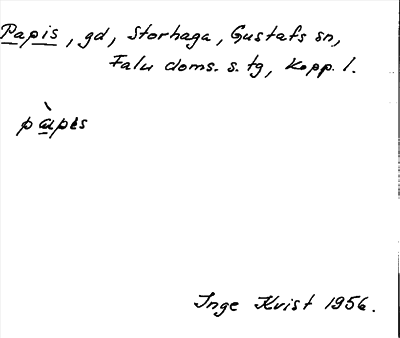 Papis, gd, Storhaga, Gustafs sn,
Falu doms. s. tg, Kopp. l.
pàpis
Inge Kvist 1956.